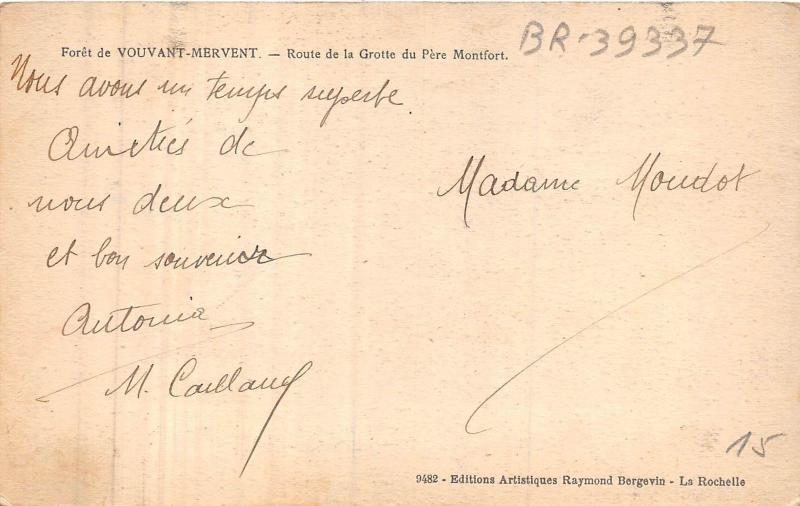 Forêt de VOUVANT-MERVENT. — Route de la Grotte du Père Montfort.
BR-39337
Nous avons un temps superbe
Amitiés de
nous deux
et bon souvenir
Antonia
M. Caillaud
Madame Moudot
15
9482 - Editions Artistiques Raymond Bergevin - La Rochelle